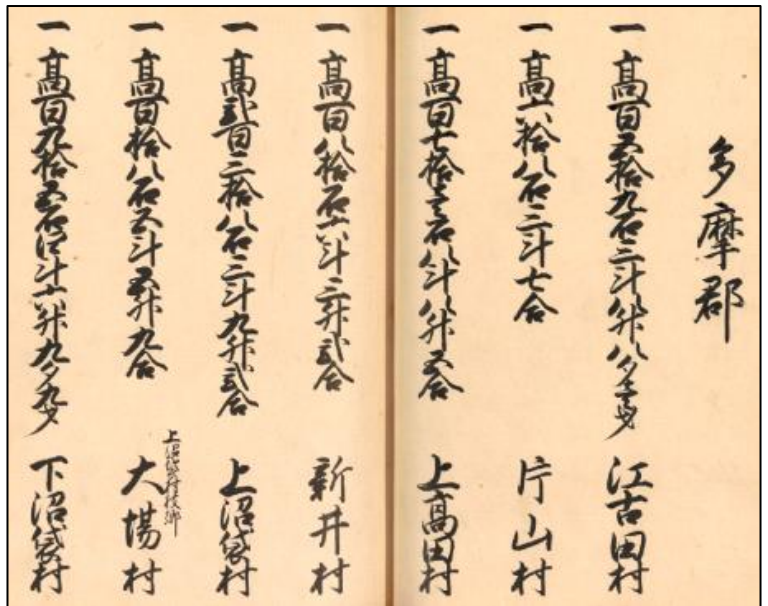 多摩郡
一 髙百五拾九石三斗八升八夕壱才 江古田村
一 髙六拾八石三斗七合 片山村
一 髙百七拾壱石八斗八升五合 上髙田村
一 髙百八拾石六斗三升弐合 新井村
一 髙弐百三拾八石三斗九升弐合 上沼袋村
一 髙百拾八石五斗五升九合 上沼袋村枝郷 大場村
一 髙百九拾五石四斗六升九夕九才 下沼袋村